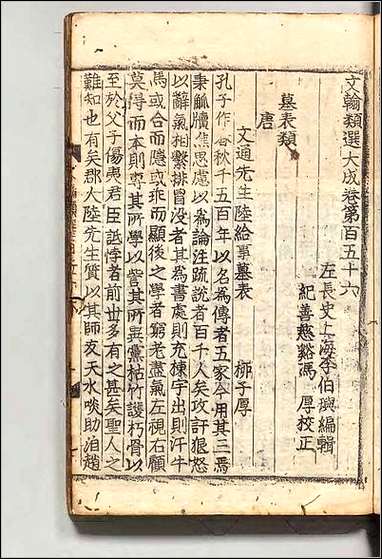 文翰類選大成卷第百五十六
左長史上海李伯璵編輯
紀善慈谿馮厚校正
墓表類
唐
文通先生陸給事墓表　柳子厚
孔子作春秋千五百年以名為傳者五家今用其三焉
秉觚牘焦思慮以為論注疏說者百千人矣攻訐狠怒
以辭氣相擊排冒没者其為書處則充棟宇出則汗牛
馬或合而隱或乖而顯後之學者窮老盡氣左視右顧
莫得而本則專其所學以訾其所異黨枯竹護朽骨以
至於父子傷夷君臣詆悖者前世多有之甚矣聖人之
難知也有矣郡大陸先生質以其師友天水啖助洎趙